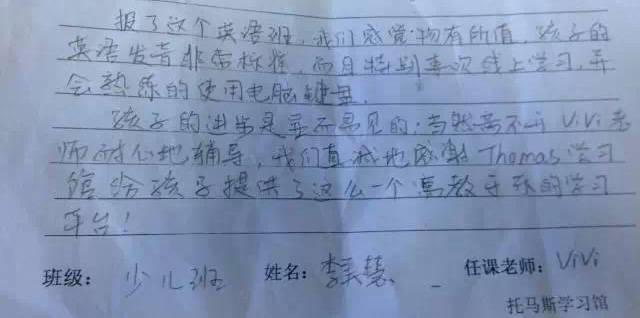 报了这个英语班,我们感觉物有所值,孩子的
英语发音非常标准,而且特别喜欢线上学习,并
会熟练的使用电脑键盘.
孩子的进步是显而易见的;当然离不开ViVi老
师耐心地辅导,我们真诚地感谢Thomas学习
馆给孩子提供了这么一个寓教于乐的学习
平台!
班级: 少儿班 姓名: 李美慧 任课老师: ViVi
托马斯学习馆